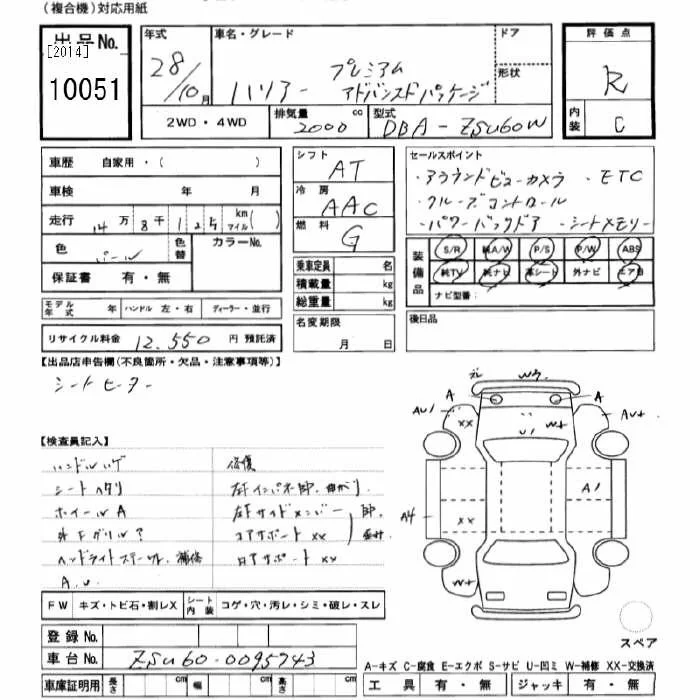 （複合機）対応用紙
出品No.
[2014]
10051
年式
28/10月
車名・グレード
ハリアー
プレミアム
アドバンスドパッケージ
ドア
形状
評価点
R
内装
C
2WD・4WD
排気量
2000 cc
型式
DBA-ZSU60W
車歴 自家用・（ ）
車検 年 月
走行 14万8千125 km マイル（ ）
色 パール
色替
カラーNo.
保証書 有・無
モデル年式 年
ハンドル 左・右
ディーラー・並行
リサイクル料金 12,550円 預託済
シフト AT
冷房 AAC
燃料 G
乗車定員 名
積載量 kg
総重量 kg
名変期限
月 日
セールスポイント
・アラウンドビューカメラ ・ETC
・クルーズコントロール
・パワーバックドア ・シートメモリー
装備品
S/R 純A/W P/S P/W ABS
純TV 純ナビ 革シート 外ナビ エアB
ナビ型番：
後日品
【出品店申告欄（不良箇所・欠品・注意事項等）】
シートヒーター
【検査員記入】
ハンドルハゲ
シートヘタリ
ホイールA
外Fグリル?
ヘッドライトステー 補修
A.U
修復
左Fインパネ部、曲がり
左Fサイドメンバー
コアサポートXX
ロアサポートXX
FW キズ・トビ石・割レX
シート内装 コゲ・穴・汚レ・シミ・破レ・スレ
登録No.
車台No. ZSU60-0095743
車庫証明用 長さ cm 幅 cm 高さ cm
W3
A
A
AU1
XX
U1
W+
AU+
A4
XX
A1
W+
スペア
A-キズ C-腐食 E-エクボ S-サビ U-凹ミ W-補修 XX-交換済
工具 有・無 ジャッキ 有・無